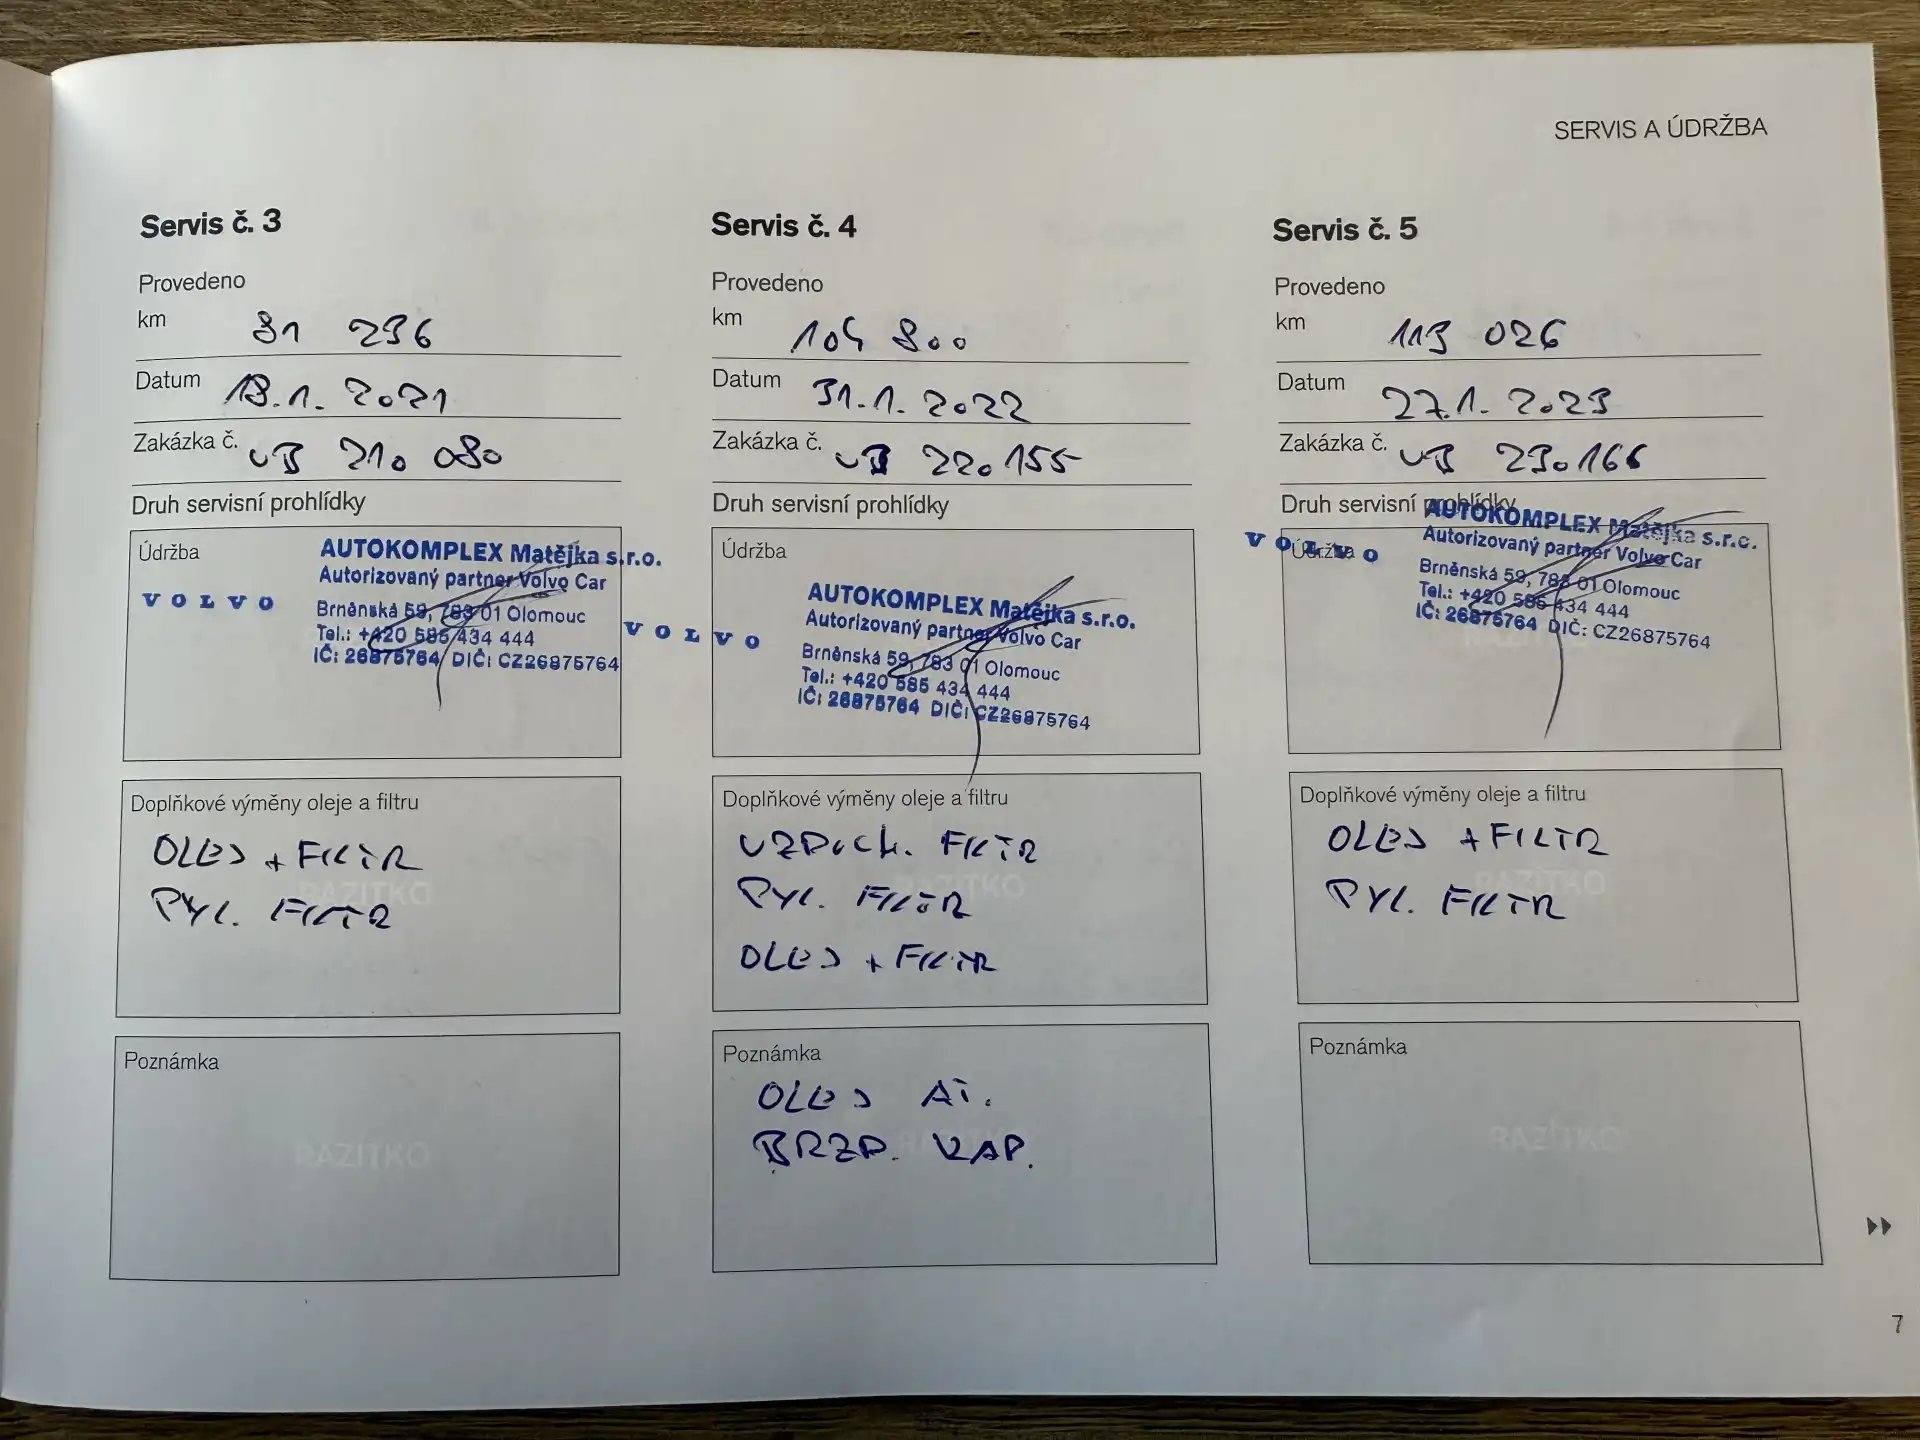 SERVIS A ÚDRŽBA
Servis č. 3
Provedeno
km 81 236
Datum 18.1. 2021
Zakázka č. UB 210 080
Druh servisní prohlídky
Údržba
VOLVO
AUTOKOMPLEX Matějka s.r.o.
Autorizovaný partner Volvo Car
Brněnská 59, 783 01 Olomouc
Tel.: +420 585 434 444
IČ: 26875764 DIČ: CZ26875764
Doplňkové výměny oleje a filtru
OLEJ + FILTR
PYL. FILTR
RAZÍTKO
Poznámka
RAZÍTKO
Servis č. 4
Provedeno
km 104 800
Datum 31.1. 2022
Zakázka č. UB 220155
Druh servisní prohlídky
Údržba
VOLVO
AUTOKOMPLEX Matějka s.r.o.
Autorizovaný partner Volvo Car
Brněnská 59, 783 01 Olomouc
Tel.: +420 585 434 444
IČ: 26875764 DIČ: CZ26875764
Doplňkové výměny oleje a filtru
VZDUCH. FILTR
PYL. FILTR
OLEJ + FILTR
Poznámka
OLEJ AT.
BRZD. KAP.
Servis č. 5
Provedeno
km 113 026
Datum 27.1. 2023
Zakázka č. UB 230166
Druh servisní prohlídky
Údržba
VOLVO
AUTOKOMPLEX Matějka s.r.o.
Autorizovaný partner Volvo Car
Brněnská 59, 783 01 Olomouc
Tel.: +420 585 434 444
IČ: 26875764 DIČ: CZ26875764
Doplňkové výměny oleje a filtru
OLEJ + FILTR
PYL. FILTR
RAZÍTKO
Poznámka
RAZÍTKO
7